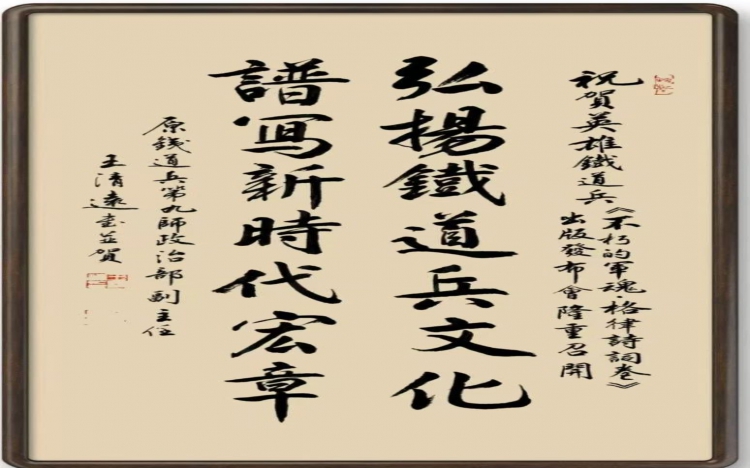 祝賀英雄鐵道兵《不朽的軍魂·格律詩詞卷》
出版發布會隆重召開
弘揚鐵道兵文化
譜寫新時代宏章
原鐵道兵第九師政治部副主任
王清遠書並賀